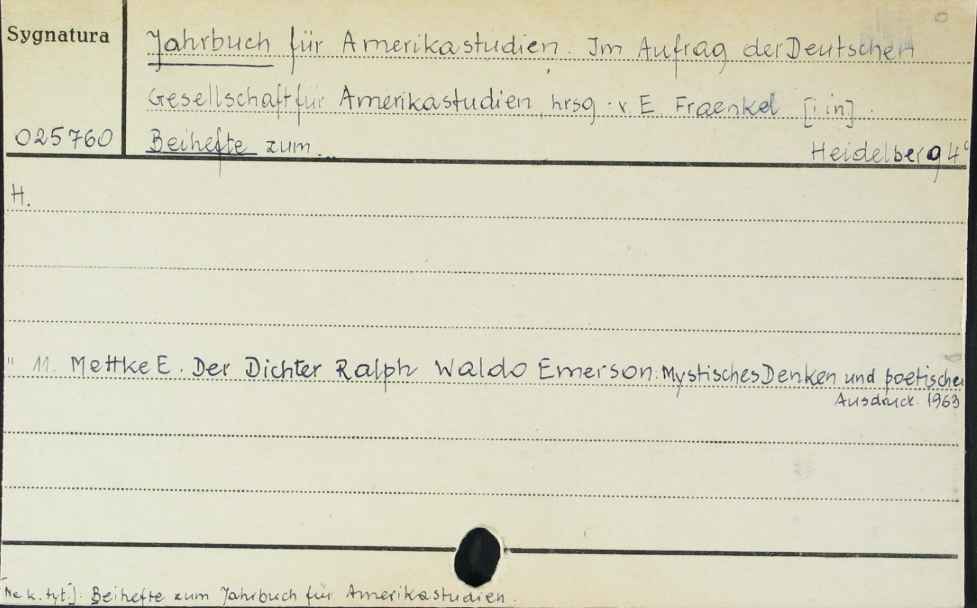 Sygnatura
Jahrbuch für Amerikastudien. Im Aufrag der Deutschen
Gesellschaft für Amerikastudien, hrsg. v. E. Fraenkel [i in].
025760
Beihefte zum...
Heidelberg 4°
H.
" 11. Mettke E. Der Dichter Ralph Waldo Emerson. Mystisches Denken und poetischer
Ausdruck. 1963
[Na k. tyt.]: Beihefte zum Jahrbuch für Amerikastudien.